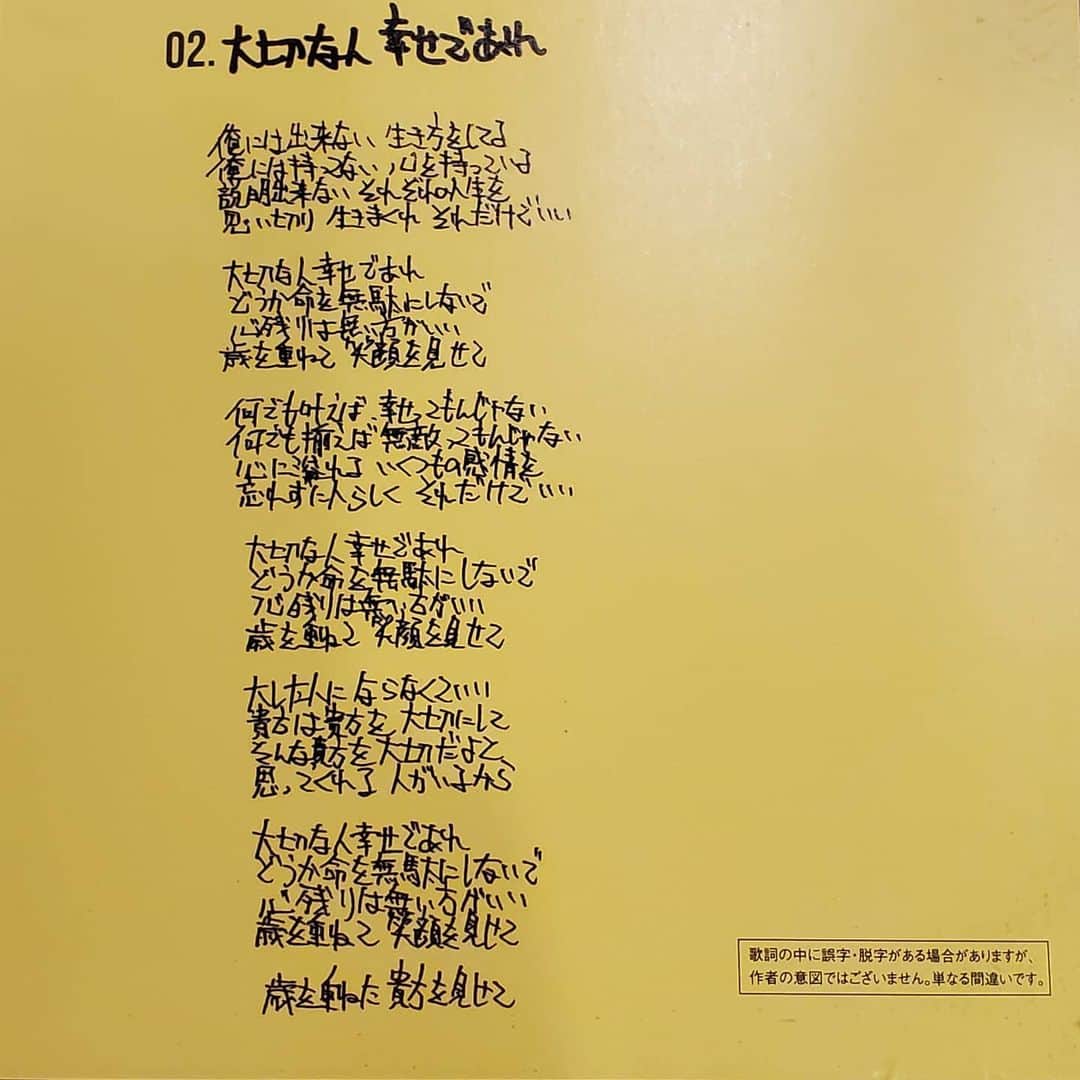 02. 大切な人 幸せであれ
俺には出来ない 生き方をしてる
俺には持ってない 心を持っている
説明出来ない それぞれの人生を
思い切り 生きまくれ それだけでいい
大切な人 幸せであれ
どうか命を無駄にしないで
心残りは無い方がいい
歳を重ねて 笑顔を見せて
何でも叶えば、幸せってもんじゃない
何でも揃えば 無敵ってもんじゃない
心に溢れる いくつもの感情を
忘れずに人らしく それだけでいい
大切な人 幸せであれ
どうか命を無駄にしないで
心残りは無い方がいい
歳を重ねて 笑顔を見せて
大した人に ならなくていい
貴方は貴方を 大切にして
そんな貴方を 大切だよと、
思ってくれる 人がいるから
大切な人 幸せであれ
どうか命を無駄にしないで
心残りは無い方がいい
歳を重ねて 笑顔を見せて
歳を重ねた 貴方を見せて
歌詞の中に誤字・脱字がある場合がありますが、
作者の意図ではございません。単なる間違いです。